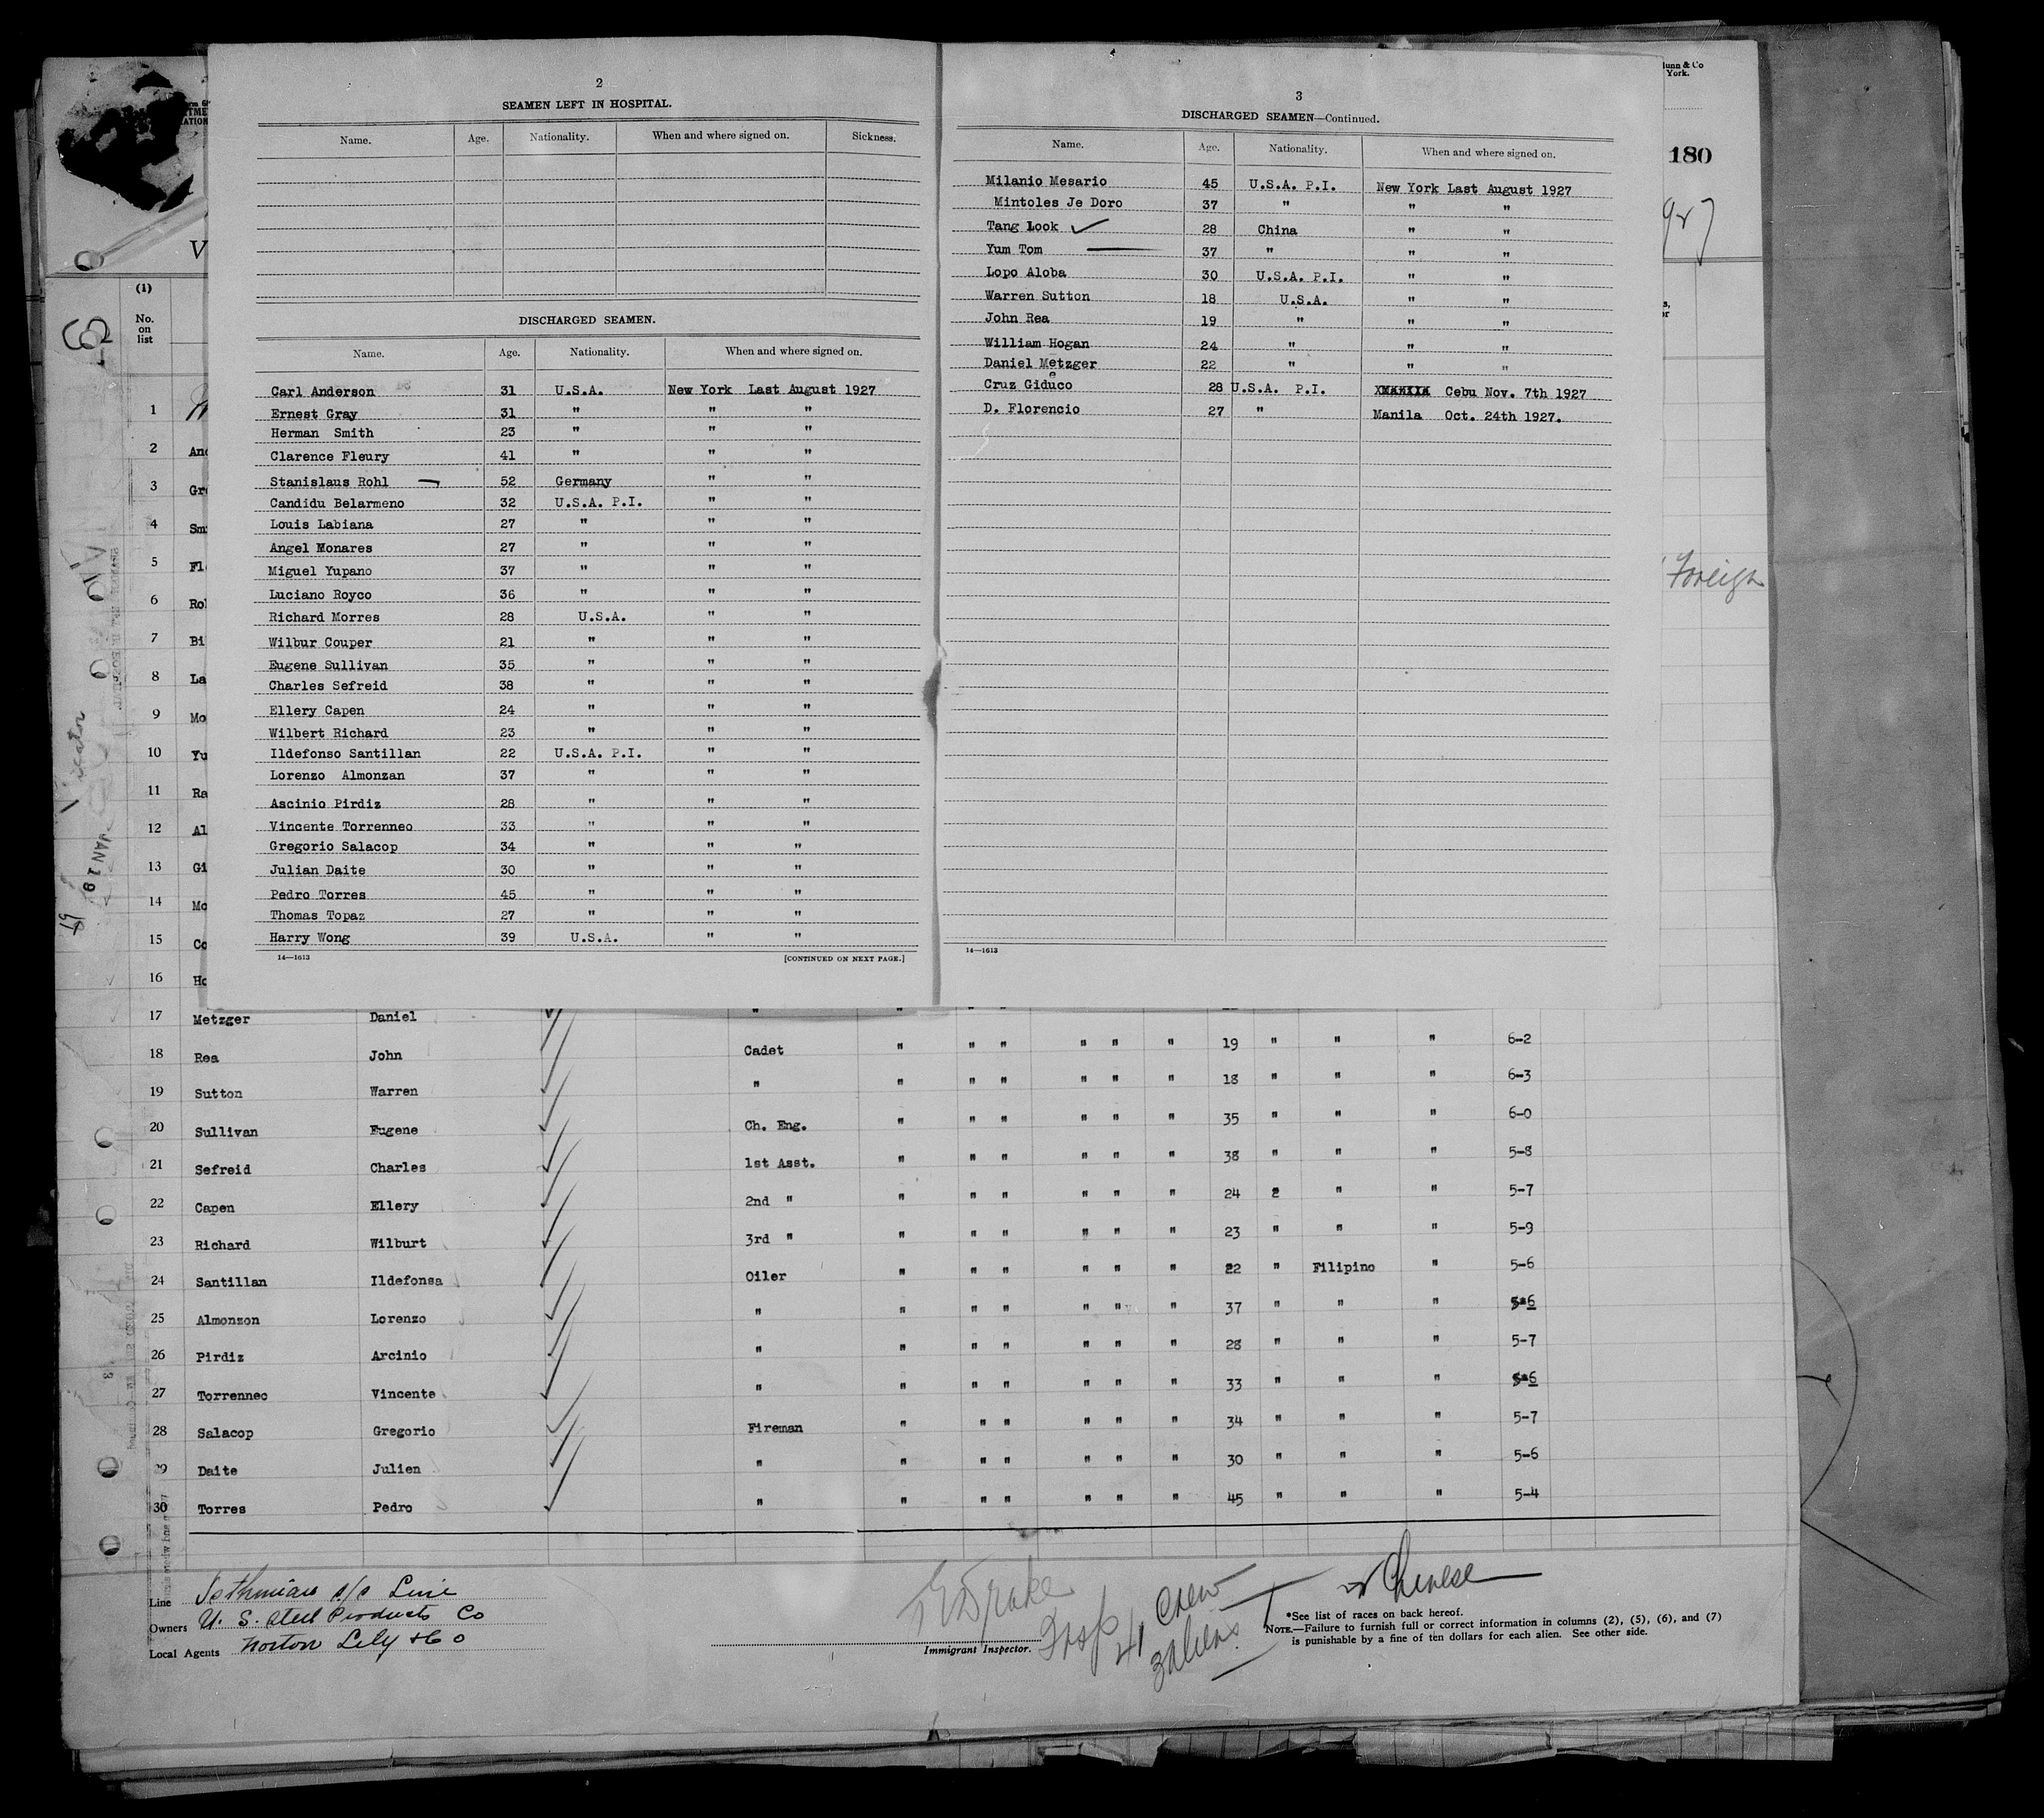 2
SEAMEN LEFT IN HOSPITAL.
Name. Age. Nationality. When and where signed on. Sickness.
DISCHARGED SEAMEN.
Name. Age. Nationality. When and where signed on.
Carl Anderson 31 U.S.A. New York Last August 1927
Ernest Gray 31 " " "
Herman Smith 23 " " "
Clarence Fleury 41 " " "
Stanislaus Rohl — 52 Germany " "
Candidu Belarmeno 32 U.S.A. P.I. " "
Louis Labiana 27 " " "
Angel Monares 27 " " "
Miguel Yupano 37 " " "
Luciano Royco 36 " " "
Richard Morres 28 U.S.A. " "
Wilbur Couper 21 " " "
Eugene Sullivan 35 " " "
Charles Sefreid 38 " " "
Ellery Capen 24 " " "
Wilbert Richard 23 " " "
Ildefonso Santillan 22 U.S.A. P.I. " "
Lorenzo Almonzan 37 " " "
Ascinio Pirdiz 28 " " "
Vincente Torrenneo 33 " " "
Gregorio Salacop 34 " " "
Julian Daite 30 " " "
Pedro Torres 45 " " "
Thomas Topaz 27 " " "
Harry Wong 39 U.S.A. " "
14—1613 [CONTINUED ON NEXT PAGE.]
3
DISCHARGED SEAMEN—Continued.
Name. Age. Nationality. When and where signed on.
Milanio Mesario 45 U.S.A. P.I. New York Last August 1927
Mintoles Je Doro 37 " " "
Tang Look ✓ 28 China " "
Yum Tom — 37 " " "
Lopo Aloba 30 U.S.A. P.I. " "
Warren Sutton 18 U.S.A. " "
John Rea 19 " " "
William Hogan 24 " " "
Daniel Metzger 22 " " "
Cruz Giduco 28 U.S.A. P.I. Cebu Nov. 7th 1927
D. Florencio 27 " Manila Oct. 24th 1927.
14—1613
unn & Co
York.
180
927
Foreign
(1)
No.
on
list
1
2 And
3 Gr
4 Sm
5 Fl
6 Rol
7 Bi
8 La
9 Mo
10 Yu
11 Ra
12 Al
13 Gi
14 Mo
15 Co
16 Ho
17 Metzger Daniel "
18 Rea John Cadet " " " " " " 19 " " " 6-2
19 Sutton Warren " " " " " " " 18 " " " 6-3
20 Sullivan Eugene Ch. Eng. " " " " " " 35 " " " 6-0
21 Sefreid Charles 1st Asst. " " " " " " 38 " " " 5-8
22 Capen Ellery 2nd " " " " " " " 24 " " " 5-7
23 Richard Wilburt 3rd " " " " " " " 23 " " " 5-9
24 Santillan Ildefonsa Oiler " " " " " " 22 " Filipino " 5-6
25 Almonzon Lorenzo " " " " " " " 37 " " " 5-6
26 Pirdiz Arcinio " " " " " " " 28 " " " 5-7
27 Torrenneo Vincente " " " " " " " 33 " " " 5-6
28 Salacop Gregorio Fireman " " " " " " 34 " " " 5-7
29 Daite Julien " " " " " " " 30 " " " 5-6
30 Torres Pedro " " " " " " " 45 " " " 5-4
Line Isthmian s/s Line
Owners U. S. Steel Products Co
Local Agents Norton Lily & Co
Immigrant Inspector.
Insp 41 Crew
3 aliens
Chinese
*See list of races on back hereof.
NOTE.—Failure to furnish full or correct information in columns (2), (5), (6), and (7)
is punishable by a fine of ten dollars for each alien. See other side.
JAN 19